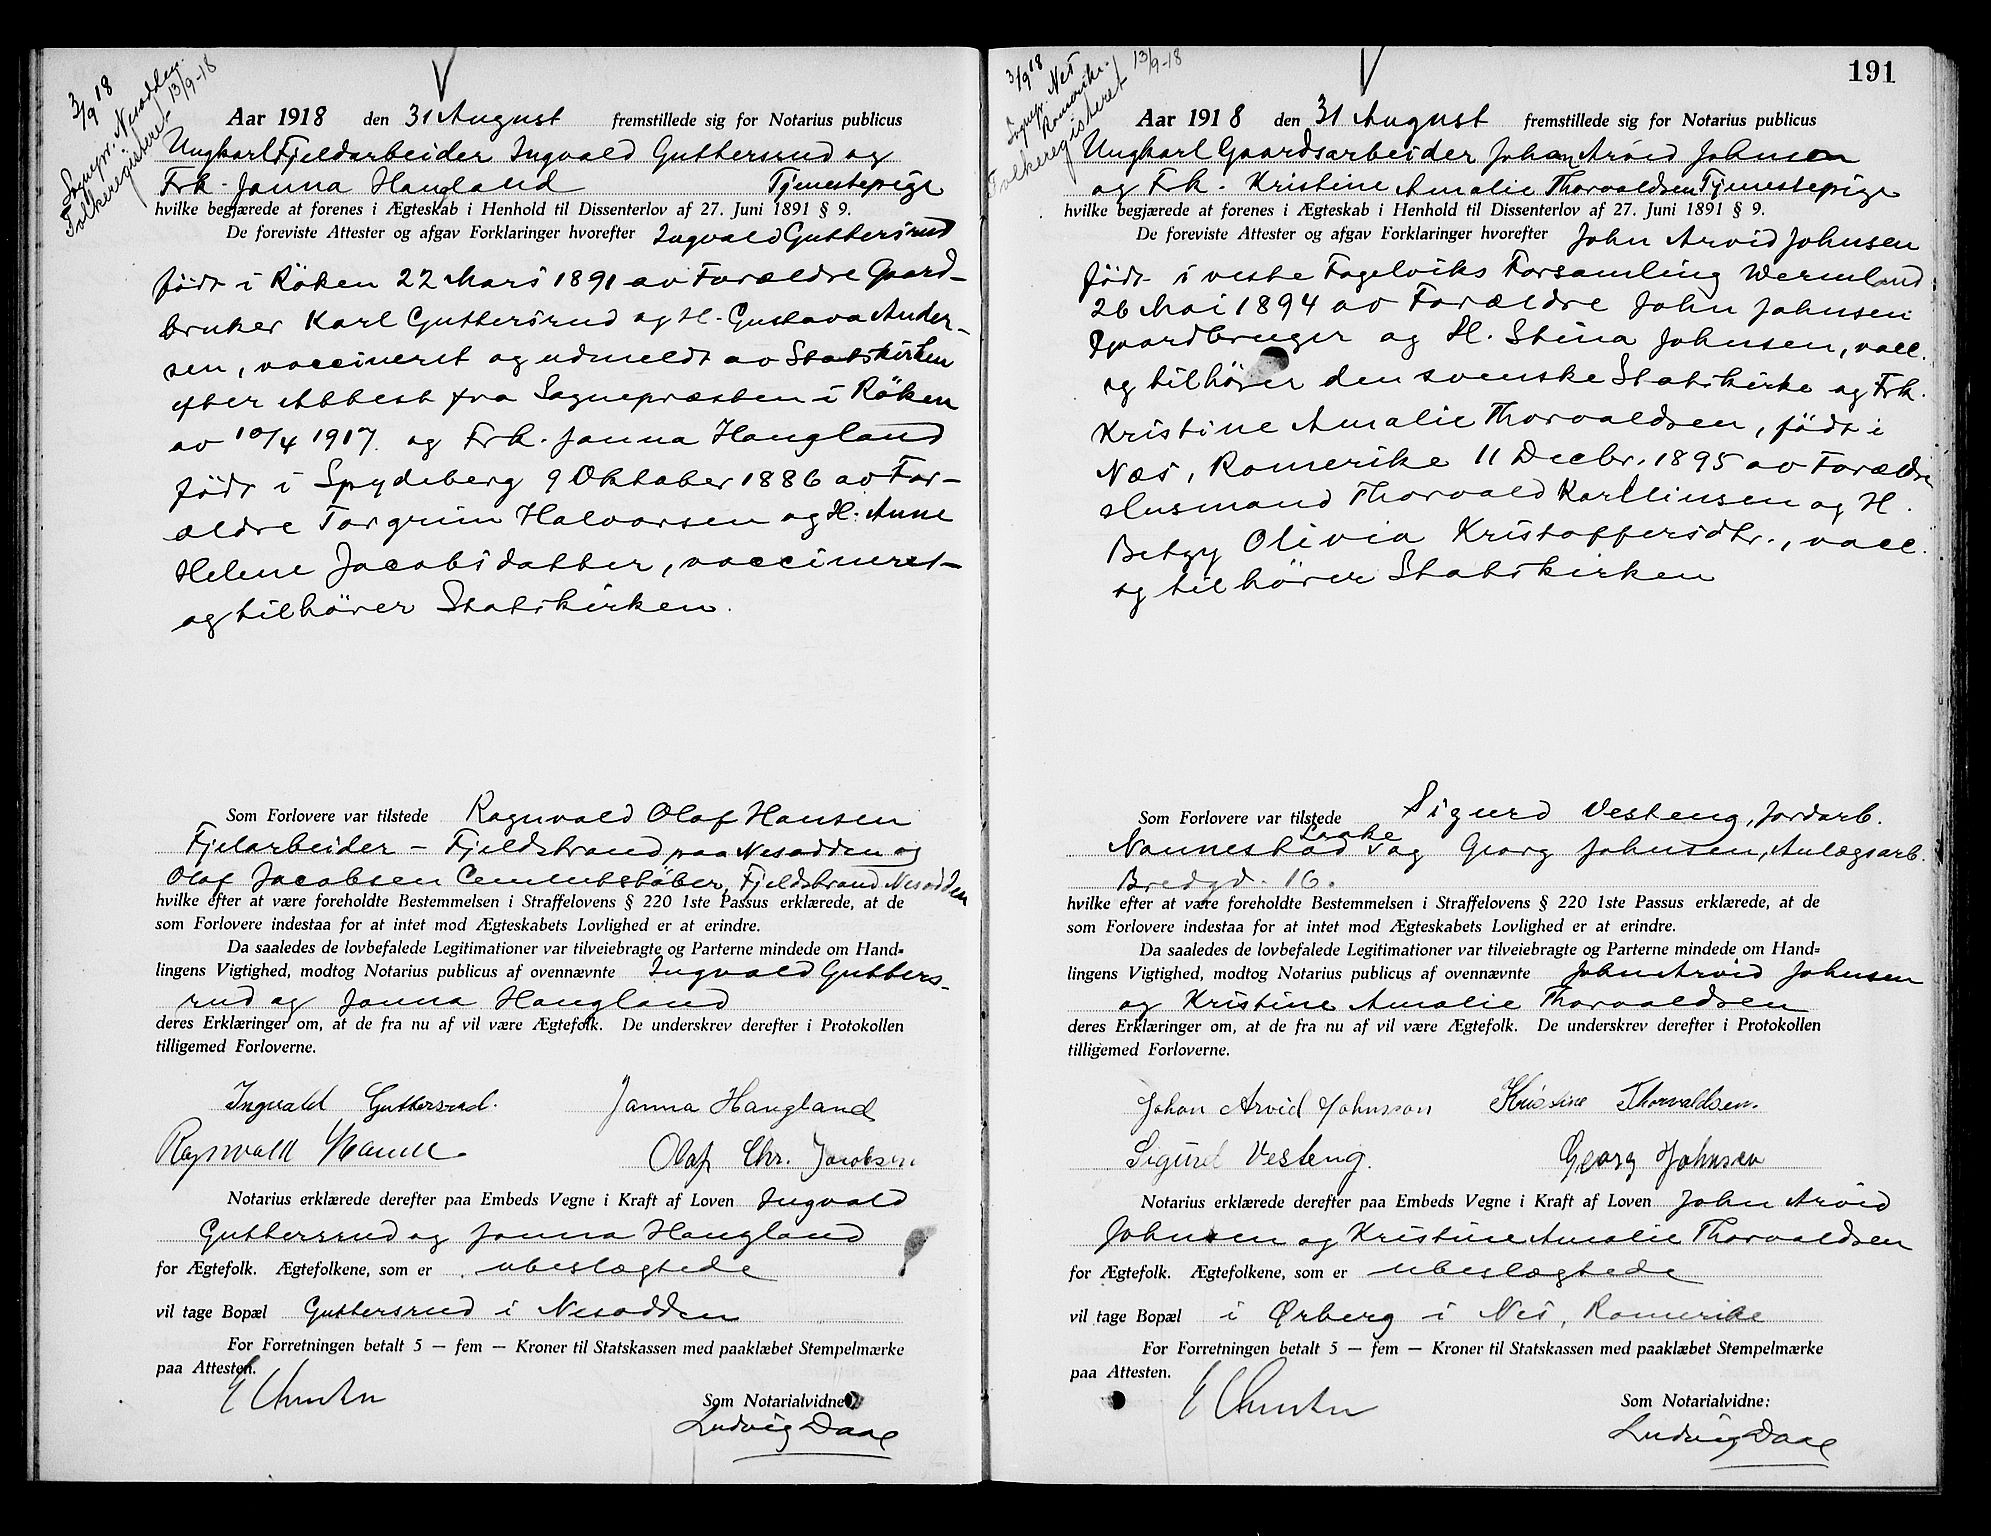 3/9 18
Sognepr. Nesodden.
Folkeregisteret 13/9-18
Aar 1918 den 31 August fremstillede sig for Notarius publicus
Ungkarl Fjeldarbeider Ingvald Guttersrud og
Frk. Janna Haugland Tjenestepige
hvilke begjærede at forenes i Ægteskab i Henhold til Dissenterlov af 27. Juni 1891 § 9.
De foreviste Attester og afgav Forklaringer hvorefter Ingvald Guttersrud
födt i Röken 22 Mars 1891 av Forældre Gaard-
bruker Karl Guttersrud og H. Gustava Ander-
sen, vaccineret og udmeldt av Statskirken
efter Attest fra Sognepræsten i Röken
av 10/4 1917. og Frk. Janna Haugland
födt i Spydeberg 9 Oktober 1886 av For-
ældre Torgrim Halvorsen og H. Anne
Helene Jacobsdatter, vaccineret-
og tilhörer Statskirken.
Som Forlovere var tilstede Ragnvald Olaf Hansen
Fjelarbeider - Fjeldstrand paa Nesodden og
Olaf Jacobsen Cementstöber, Fjeldstrand Nesodden
hvilke efter at være foreholdte Bestemmelsen i Straffelovens § 220 1ste Passus erklærede, at de
som Forlovere indestaa for at intet mod Ægteskabets Lovlighed er at erindre.
Da saaledes de lovbefalede Legitimationer var tilveiebragte og Parterne mindede om Hand-
lingens Vigtighed, modtog Notarius publicus af ovennævnte Ingvald Gutters-
rud og Janna Haugland
deres Erklæringer om, at de fra nu af vil være Ægtefolk. De underskrev derefter i Protokollen
tilligemed Forloverne.
Ingvald Guttersrud. Janna Haugland
Ragnvald Hansen. Olaf Chr. Jacobsen.
Notarius erklærede derefter paa Embeds Vegne i Kraft af Loven Ingvald
Guttersrud og Janna Haugland
for Ægtefolk. Ægtefolkene, som er ubeslægtede
vil tage Bopæl Guttersrud i Nesodden
For Forretningen betalt 5 — fem — Kroner til Statskassen med paaklæbet Stempelmærke
paa Attesten.
Som Notarialvidne:
Ludvig Daae
191
3/9 18
Sognepr. Nes
Romerike.
Folkeregisteret 13/9-18
Aar 1918 den 31 August fremstillede sig for Notarius publicus
Ungkarl Gaardsarbeider Johan Arvid Johnson
og Frk. Kristine Amalie Thorvaldsen Tjenestepige
hvilke begjærede at forenes i Ægteskab i Henhold til Dissenterlov af 27. Juni 1891 § 9.
De foreviste Attester og afgav Forklaringer hvorefter John Arvid Johnsen
födt i vestre Fagelviks Forsamling Wermland
26 Mai 1894 av Forældre John Johnsen
Gaardbruger og H. Stina Johnsen, vacc.
og tilhörer den svenske Statskirke og Frk.
Kristine Amalie Thorvaldsen, födt i
Næs, Romerike 11 Decbr. 1895 av Forældre
Husmand Thorvald Karllinsen og H.
Betzy Olivia Kristoffersdtr., vacc.
og tilhörer Statskirken
Som Forlovere var tilstede Sigurd Vesteng, Jordarb.
Laake
Nannestad og Georg Johnsen, Anlægsarb.
Bredgd. 16.
hvilke efter at være foreholdte Bestemmelsen i Straffelovens § 220 1ste Passus erklærede, at de
som Forlovere indestaa for at intet mod Ægteskabets Lovlighed er at erindre.
Da saaledes de lovbefalede Legitimationer var tilveiebragte og Parterne mindede om Hand-
lingens Vigtighed, modtog Notarius publicus af ovennævnte John Arvid Johnsen
og Kristine Amalie Thorvaldsen
deres Erklæringer om, at de fra nu af vil være Ægtefolk. De underskrev derefter i Protokollen
tilligemed Forloverne.
Johan Arvid Johnsson Kristine Thorvaldsen.
Sigurd Vesteng. Georg Johnsen
Notarius erklærede derefter paa Embeds Vegne i Kraft af Loven John Arvid
Johnsen og Kristine Amalie Thorvaldsen
for Ægtefolk. Ægtefolkene, som er ubeslægtede
vil tage Bopæl i Ørberg i Nes, Romerike
For Forretningen betalt 5 — fem — Kroner til Statskassen med paaklæbet Stempelmærke
paa Attesten.
Som Notarialvidne:
Ludvig Daae